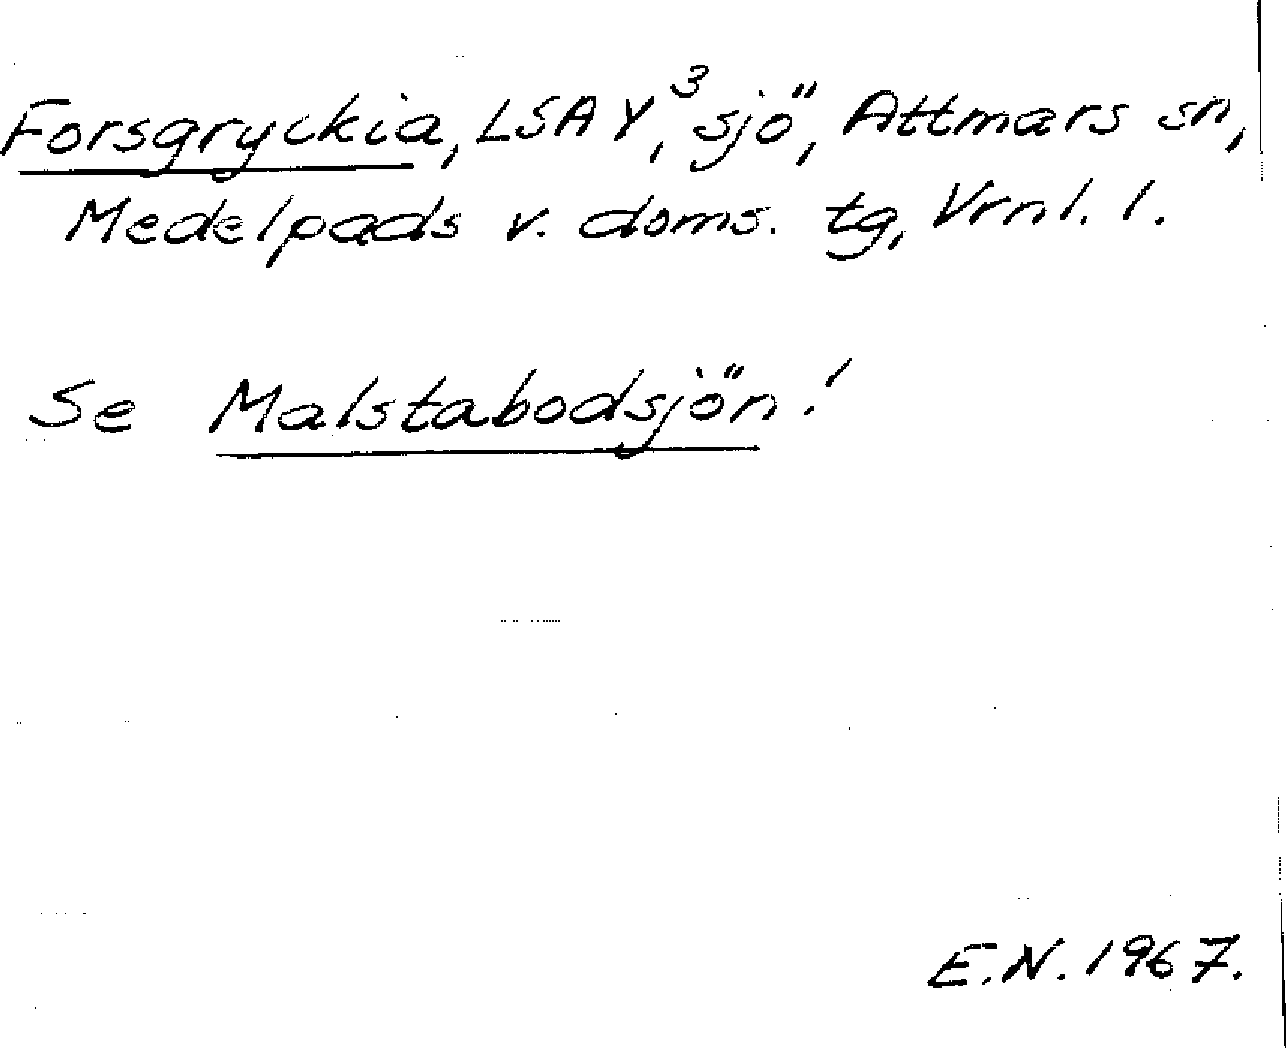 Forsgryckia, LSA Y³, sjö, Attmars sn,
Medelpads v. doms. tg, Vrnl. l.
Se Malstabodsjön!
E.N. 1967.